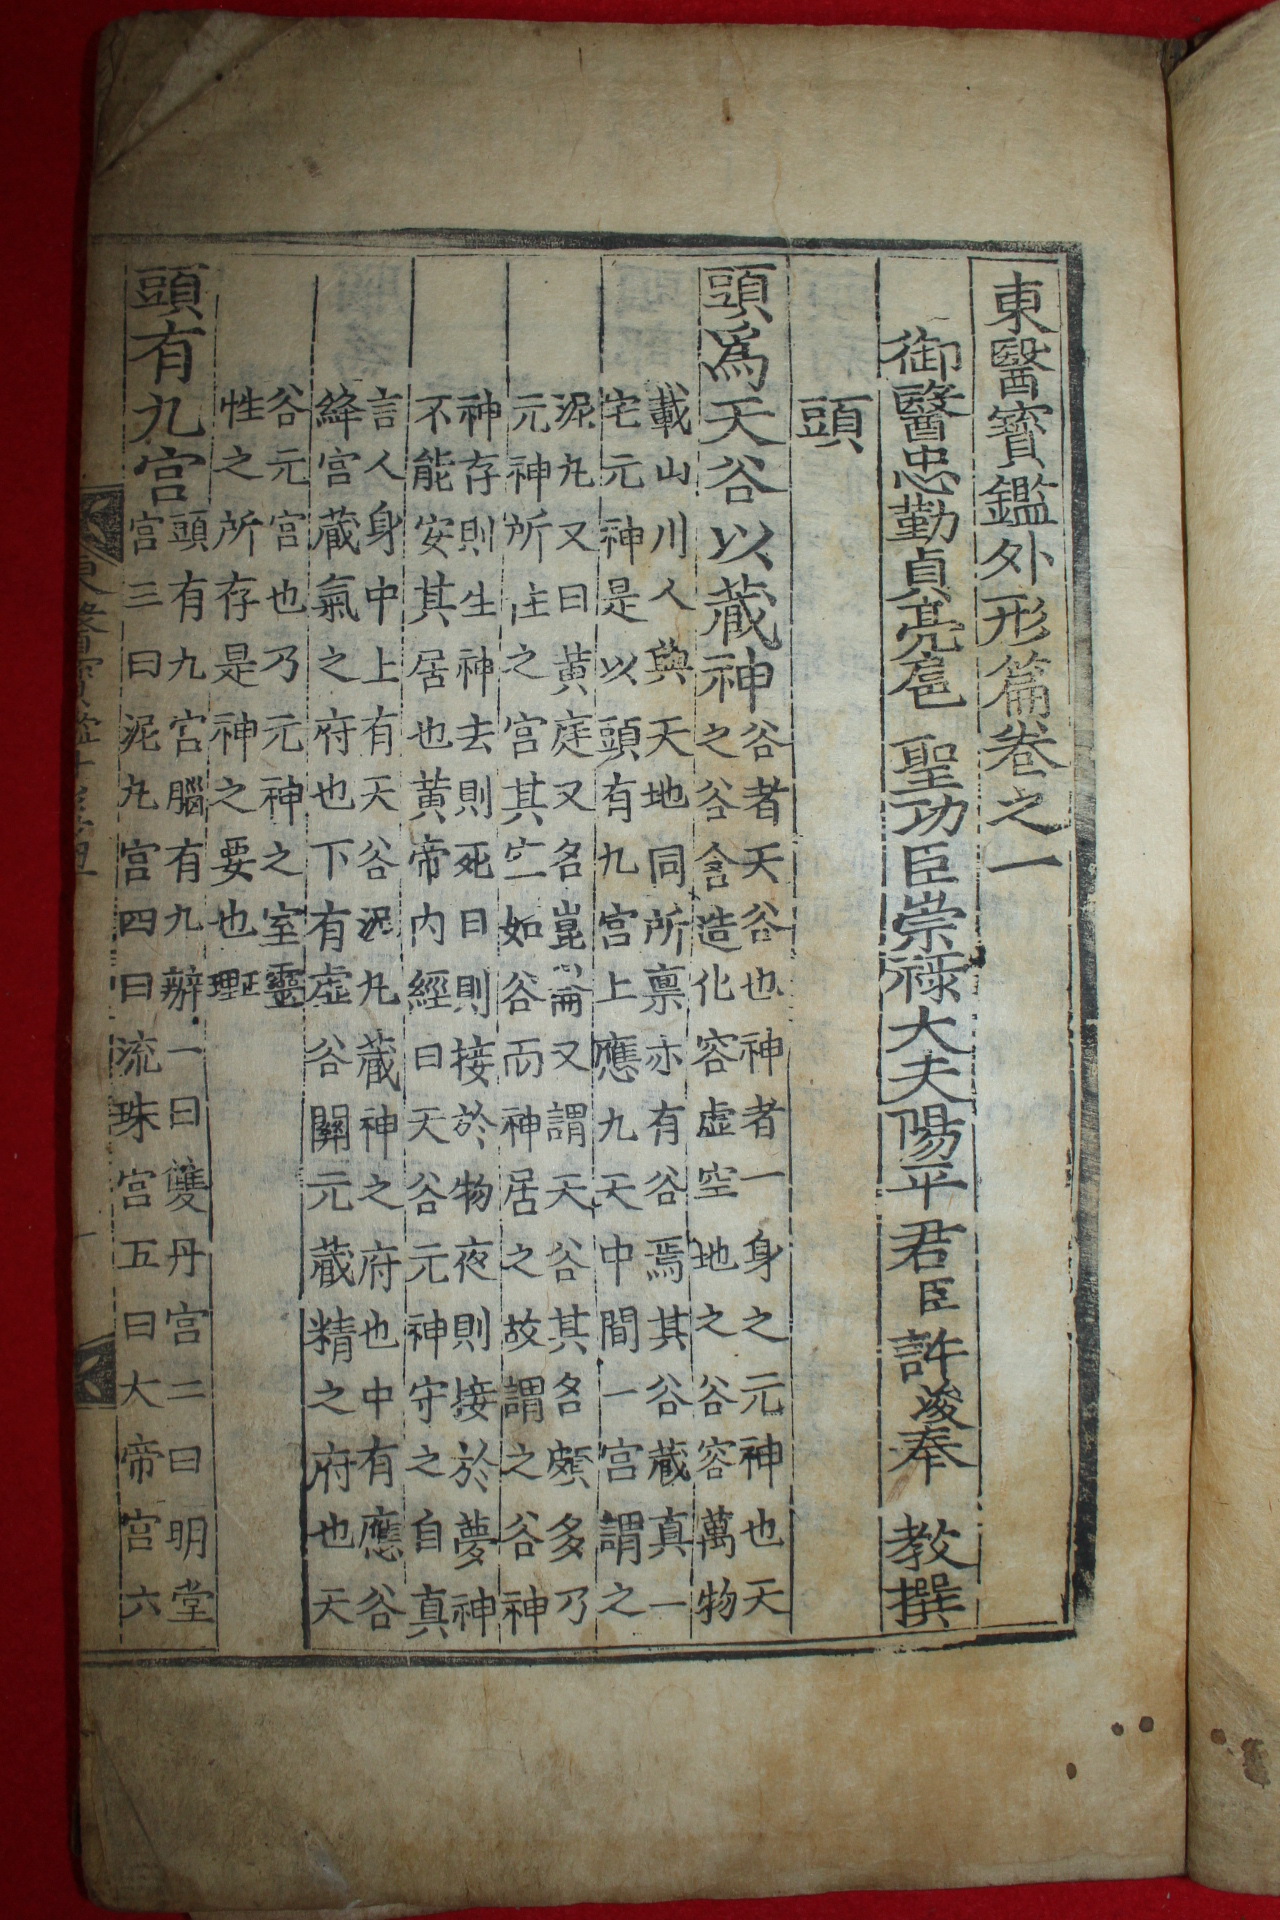 東醫寶鑑外形篇卷之一
御醫忠勤貞亮扈 聖功臣崇祿大夫陽平君臣許浚奉 教撰
頭
頭爲天谷以藏神
谷者天谷也神者一身之元神也天
之谷含造化容虛空地之谷容萬物
載山川人與天地同所禀亦有谷焉其谷藏真一
宅元神是以頭有九宮上應九天中間一宮謂之
泥丸又曰黃庭又名崑崙又謂天谷其名頗多乃
元神所住之宮其空如谷而神居之故謂之谷神
神存則生神去則死日則接於物夜則接於夢神
不能安其居也黃帝內經曰天谷元神守之自真
言人身中上有天谷泥丸藏神之府也中有應谷
絳宮藏氣之府也下有虛谷關元藏精之府也天
谷元宮也乃元神之室靈
性之所存是神之要也正理
頭有九宮
頭有九宮腦有九瓣一曰雙丹宮二曰明堂
宮三曰泥丸宮四曰流珠宮五曰大帝宮六